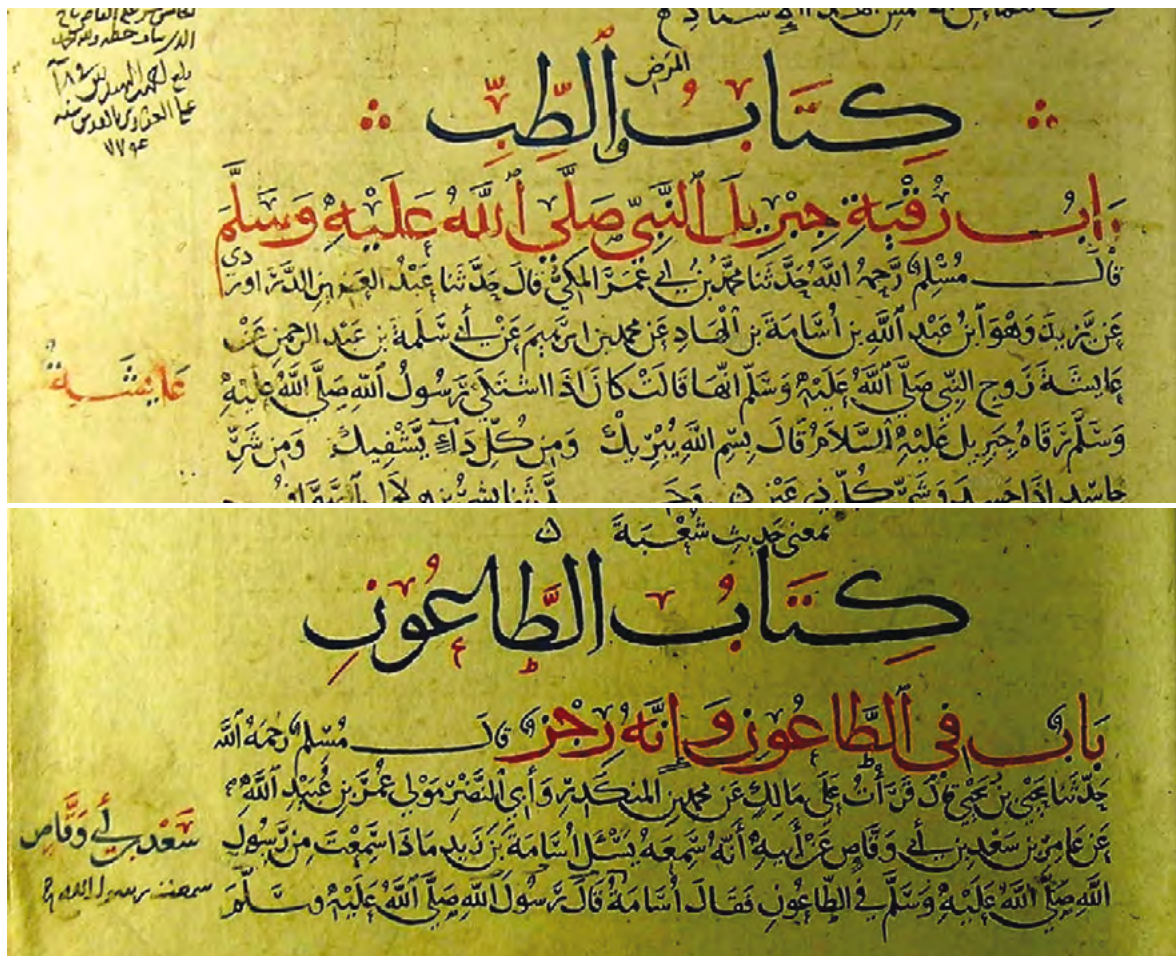 كِتَابُ وَالطِّبِّ
المرض
بابُ رُقْيَةِ جِبْرِيلَ النَّبِيَّ صَلَّى اللَّهُ عَلَيْهِ وَسَلَّمَ
قال مُسْلِمٌ رَحِمَهُ اللَّهُ حَدَّثَنَا مُحَمَّدُ بْنُ أَبِي عُمَرَ المَكِّيُّ قَالَ حَدَّثَنَا عَبْدُ العزيز الدَّرَاوردي
عَنْ يَزِيدَ وَهْوَ ابْنُ عَبْدِ اللَّهِ بن أُسَامَةَ بن الْهَادِ عَن محمد بن ابرهيم عَنْ أَبِي سَلَمَةَ بن عَبْدِ الرحمن عَنْ
عَايشَةَ زَوجِ النَّبِيِّ صَلَّى اللَّهُ عَلَيْهِ وَسَلَّمَ انَّهَا قَالَتْ كَانَ اذَا اشْتَكَى رَسُولُ اللَّهِ صَلَّى اللَّهُ عَلَيْهِ
عَايشَة
وَسَلَّمَ رَقَاهُ جِبْرِيلُ عَلَيْهِ السَّلَامُ قَالَ بِسْمِ اللَّهِ يُبْرِيكَ وَمِن كُلِّ دَاءٍ يَشْفِيكَ وَمِن شَرِّ
حاسد اذَا حَسَدَ وَشَرِّ كُلِّ ذِي عَيْنٍ
بمعنى حَدِيثِ شُعْبَةَ
كِتَابُ الطَّاعُونِ
بَابٌ فِي الطَّاعُونِ وَإِنَّهُ رِجْزٌ قال مُسْلِمٌ رَحِمَهُ اللَّه
حَدَّثَنَا يَحْيَى بْنُ يَحْيَى قال قَرَأْتُ عَلَى مَالِكٍ عَن محمد بن المنكَدِرِ وَأَبِي النَّضْرِ مَوْلَى عُمَرَ بن عُبَيْدِ اللَّهِ
عَن عَامِرِ بن سَعْدِ بن أَبِي وَقَّاصٍ عَنْ أَبِيهِ أَنَّهُ سَمِعَهُ يَسْئَلُ أُسَامَةَ بْنَ زَيدٍ مَاذَا سَمِعْتَ مِن رَسُولِ
سَعْد بن أَبِي وَقَّاص
اللَّهِ صَلَّى اللَّهُ عَلَيْهِ وَسَلَّمَ فِي الطَّاعُونِ فَقَالَ أُسَامَةُ قَالَ رَسُولُ اللَّهِ صَلَّى اللَّهُ عَلَيْهِ وَسَلَّمَ